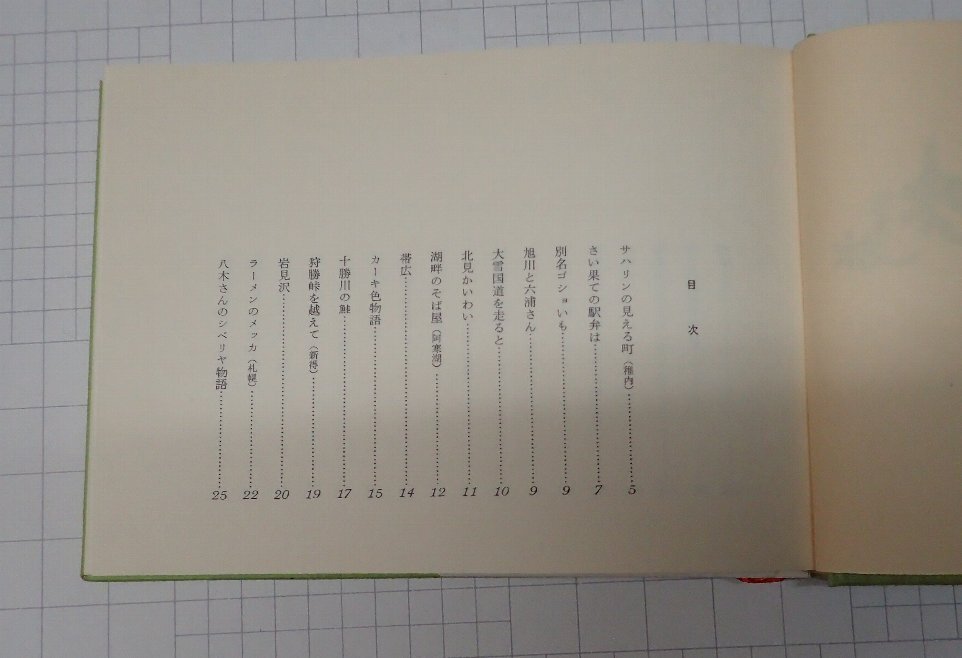 目次
サハリンの見える町（稚内）……………5
さい果ての駅弁は……………7
別名ゴショいも……………9
旭川と六浦さん……………9
大雪国道を走ると……………10
北見かいわい……………11
湖畔のそば屋（阿寒湖）……………12
帯広……………14
カーキ色物語……………15
十勝川の鮭……………17
狩勝峠を越えて（新得）……………19
岩見沢……………20
ラーメンのメッカ（札幌）……………22
八木さんのシベリヤ物語……………25